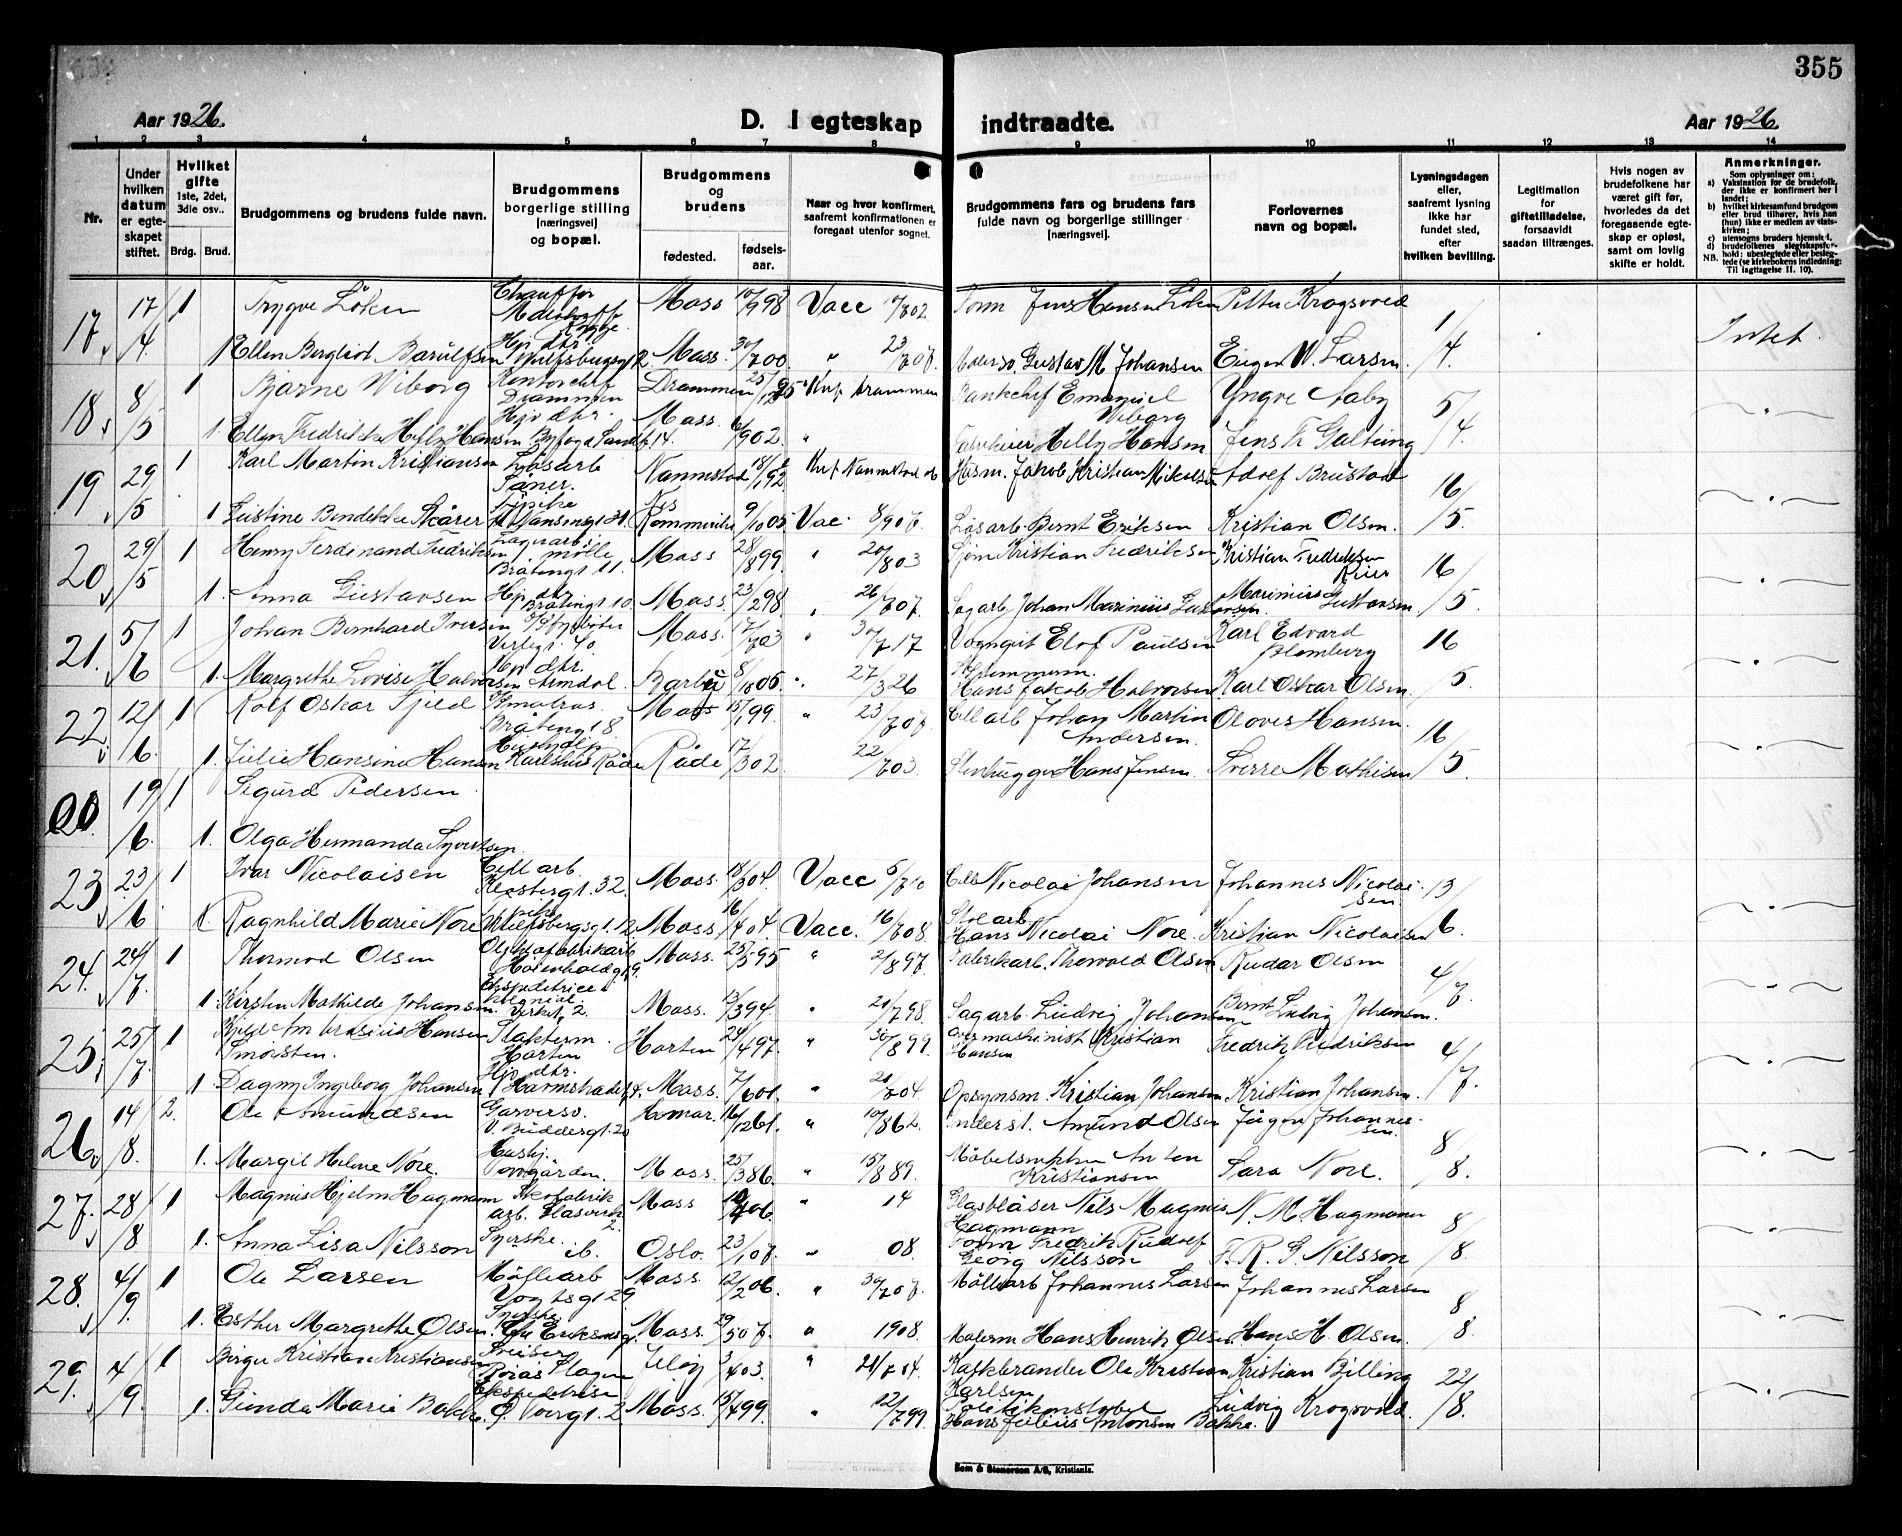 355
Aar 1926.
D. I egteskap
indtraadte.
Aar 1926.
1 2 3 4 5 6 7 8 9 10 11 12 13 14
Nr.
Under hvilken datum er egteskapet stiftet.
Hvilket gifte 1ste, 2det, 3die osv..
Brdg. Brud.
Brudgommens og brudens fulde navn.
Brudgommens borgerlige stilling [næringsvei] og bopæl.
Brudgommens og brudens
fødested.
fødselsaar.
Naar og hvor konfirmert, saafremt konfirmationen er foregaat utenfor sognet.
Brudgommens fars og brudens fars fulde navn og borgerlige stillinger [næringsvei].
Forlovernes navn og bopæl.
Lysningsdagen eller, saafremt lysning ikke har fundet sted, efter hvilken bevilling.
Legitimation for giftetilladelse, forsaavidt saadan tiltrænges.
Hvis nogen av brudefolkene har været gift før, hvorledes da det foregaaende egteskap er opløst, samt om lovlig skifte er holdt.
Anmerkninger.
Som oplysninger om:
a) Vaksination for de brudefolk, der ikke er konfirmert her i landet;
b) hvilket kirkesamfund brudgom eller brud tilhører, hvis han (hun) ikke er medlem av statskirken;
c) utensogns bruders hjemsted.
d) brudefolkenes slegtskapsforhold: ubeslegtede eller beslegtede (se kirkebokens indledning: Til iagttagelse II. 10).
NB.
17 17/4 1 Trygve Löken Chauffør Rygge Moss 10/9 98 Vacc 17/8 02 Jens Hansen Löken Petter Krogsvold 1/4 Intet
1 Ellen Bergliot Barulfsen Hj. dtr. Moss 30/7 00 " 23/7 07 Gustav M Johansen Eugen W. Larsen
18 8/5 1 Bjarne Wiborg Kontorchef Drammen Drammen 25/12 95 Knf Drammen Bankchef Emanuel Wiborg Yngve Aaby 5/4
1. Ellen Fredrikke Helly Hansen Hjv dtr. Moss 6/9 02. " Helly Hansen Jens Fr Galtung
19 29/5 1 Karl Martin Kristiansen Løsarb Såner. Nannestad 18/1 92 Knf Nannestad Husm. Jakob Kristian Mikelsen Adolf Brustad 16/5.
1 Justine Bendikke Skårer 9/10 05 Vac. 8/9 07 Løsarb. Bernt Eriksen Kristian Olsen.
20 29/5 1 Henry Ferdinand Fredriksen Lagerarb i mølle Bråtengt 11. Moss 28/8 99 " 20/8 03 Sjøm Kristian Fredriksen Kristian Fredriksen 16/5.
1. Anna Gustavsen Hj. dtr Bråtengt 10. Moss. 23/2 98 " 26/7 07. Sagarb Johan Marinius Gustavsen. Marinius Gustavsen.
21. 5/6 1 Johan Bernhard Iversen Verlegt. 40. Moss. 17/7 03 " 30/7 17 Vogngut Elof Paulsen Karl Edvard Blomberg 16/5.
1. Margrethe Lovise Halvorsen Hj. dtr. Arendal. Barbu 8/10 05 " 27/3 26 Hans Jakob Halvorsen Karl Oskar Olsen
22. 12/6 1 Rolf Oskar Fjeld Bråtengt 8. Moss 15/1 99 " 23/7 07 Cellarb Johan Martin Andersen. Olover Hansen. 16/5.
1. Julie Hansine Hansen Karlshus Råde Råde 17/3 02 22/7 03. Stenhugger Hans Jensen. Sverre Mathisen
00. 19/6 1 Sigurd Pedersen
1. Olga Hermanda Syvertsen.
23 23/6 1 Ivar Nicolaisen Cell arb. Klostergt. 32. Moss. 18/3 04. Vacc 5/7 10 Cella Nicolai Johansen Johannes Nicolaisen 13/6.
1 Ragnhild Marie Nore Wulfsbergsgt. 12 Moss 16/4 04. Vacc. 16/7 08. Hans Nicolai Nore. Kristian Nicolaisen
24. 24/7. 1 Thormod Olsen Moss. 25/5 95 " 2/8 97. Fabrikarb. Thorvald Olsen Reidar Olsen 4/7.
1 Kirsten Mathilde Johansen. Ekspeditrice Verket 2. Moss. 13/3 94. " 21/7 98. Sagarb. Ludvig Johansen Bernt Ludvig Johansen.
25 25/7. 1 Ambrosius Hansen Smørsten. Slakterm. Horten Horten 24/4 97. " 30/8 99. Overmaskinist Kristian Hansen Fredrik Fredriksen 4/7.
1 Dagny Ingeborg Johansen Hj dtr. Moss. 7/6 01. " 21/7 04. Opsynsm. Kristian Johansen Kristian Johansen.
26 14/8. 2. Ole Amundsen V. Buddersgt. 20 Komar. 16/12 61. " 10/8 62. Inderst. Amund Olsen Jørgen Johannessen. 8/8.
1. Margit Helene Nore. Hushj. Moss. 25/3 86. " 15/8 89. Møbelsnekker Anton Kristiansen Sara Nore.
27. 28/8 1 Magnus Hjelm Hagmann Skofabrik arb. Glasverk 2. Moss 06. " 14 Glasblåser Nils Magnus Hagmann N. M. Hagmann 8/8.
1. Anna Lisa Nilsson Syerske. ib. Oslo. 23/1 07. " 08. Form Fredrik Rudolf Georg Nilsson F. R. G. Nilsson
28. 4/9. 1 Ole Larsen Møllearb Vogtsgt 29 Moss. 12/2 06. " 30/7 07. Møllearb Johannes Larsen Johannes Larsen 8/8.
1. Esther Margrethe Olsen. Syerske Moss. 29/5 07. " 1908. Malerm Hans Henrik Olsen Hans H. Olsen.
29. 4/9. 1 Birger Kristian Kristiansen Sveiser Jeløy 3/4 03. " 21/7 14. Kalkbrænder Ole Kristian Karlsen Kristian Billing 22/8.
1. Gunda Marie Bakke. Ekspeditrise Moss. 15/7 99. " 12/7 99. Politikonstabel Hans Julius Antonsen Bakke. Ludvig Krogsvold.
Sem & Stenersen A/S, Kristiania.